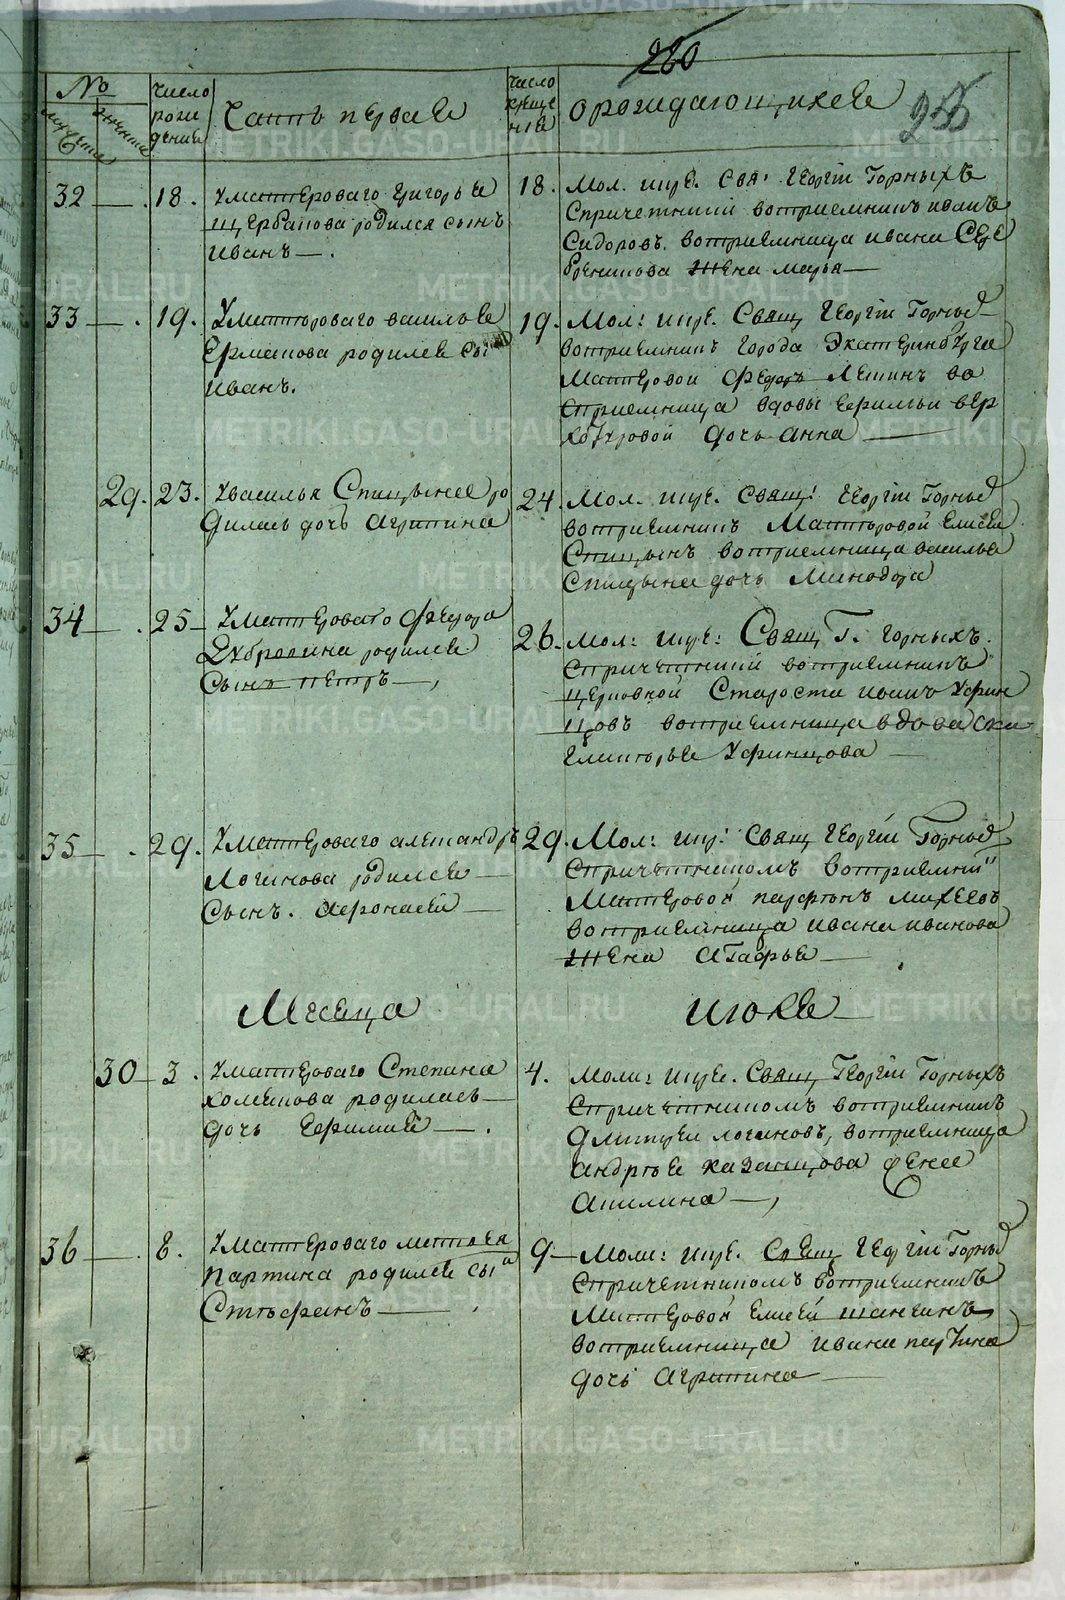 280
255
№
мужеска
женска
число рожд дения
Часть первая
число креще нїя
о рождающихся
32 18. У мастероваго Григорья
Щербакова родился сынъ
Иванъ
18. Мол. имре. Свя: Георгїй Горныхъ
Спричетники восприемникъ иванъ
Сидоровъ. восприемница ивана Сере
бреникова жена марья
33 19. У мастероваго василья
Ермакова родился сы
Иванъ.
19. Мол: имре. Свящ Георгїй Горныхъ
восприемникъ города Экатеринбурга
Мастеровой Федоръ во
сприемница вдовы
дочь Анна
29. 23. У василья Спицына ро
дилась дочь Агрипина
24. Мол. имре. Свящ: Георгїй Горныхъ
восприемникъ Мастеровой Елисей
Спицынъ восприемница василья
Спицына дочь Минодора
34 25 У Мастероваго Федора
Дубровина родился
Сынъ петръ
26. Мол: имре: Свящ Г. Горныхъ.
Спричетники восприемникъ
церковной Староста иванъ Уфин
цовъ восприемница вдова
Уфинцова
35 29. У мастероваго александра
Логинова родился
Сынъ. Афонасей
29. Мол: имр: Свящ Георгїй Горныхъ
Спричетникомъ восприемник
Мастеровой парфенъ михеевъ
восприемница ивана иванова
жена Агафья
Месяца
июля
30 3. У мастероваго Степана
Колескова родилась
дочь Ефимия
4. Моли: имре. Свящ Георгїй Горныхъ
Спричетникомъ восприемникъ
Дмитреи логиновъ, восприемница
андрея казанцова жена
Акилина
36 8. У Мастероваго матвея
паркина родился сы
Стефанъ
9 Моли: имре. Свящ Георгїй Горныхъ
Спричетникомъ восприемникъ
Мастеровой Елисей шангинъ
восприемница ивана паркина
дочь Агрипина
METRIKI.GASO-URAL.RU